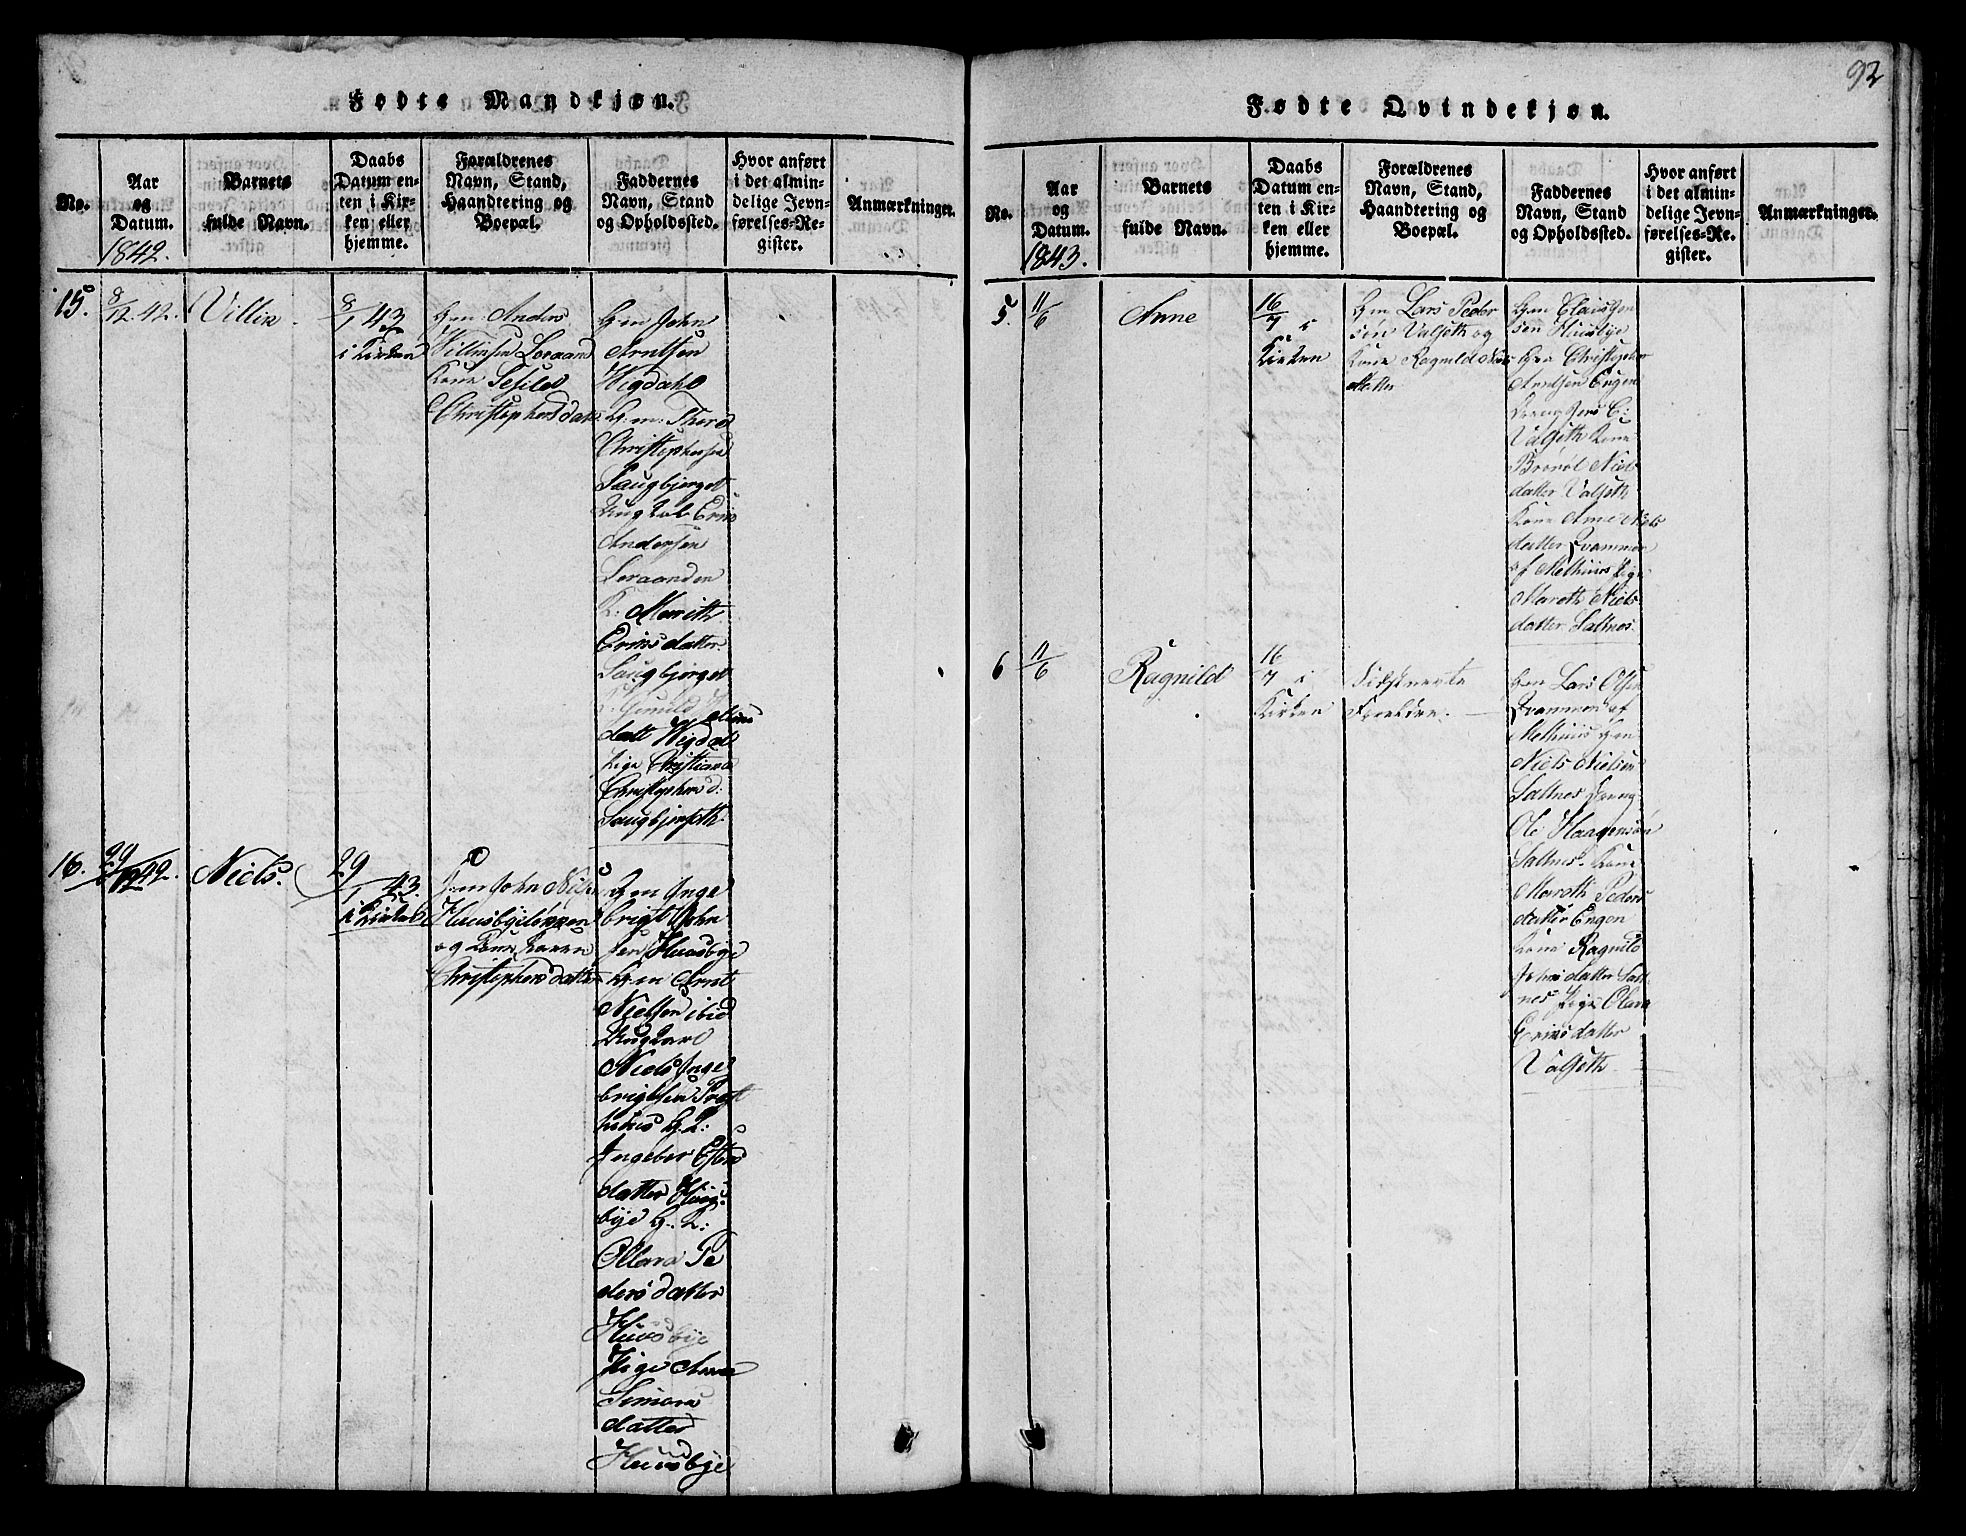 Fødte Mandkjøn.
No.
Aar
og
Datum.
1842.
Barnets
fulde Navn.
Daabs
Datum en-
ten i Kir-
ken eller
hjemme.
Forældrenes
Navn, Stand,
Haandtering og
Boepæl.
Faddernes
Navn, Stand
og Opholdssted.
Hvor anført
i det almin-
delige Jevn-
førelses-Re-
gister.
Anmærkninger.
15.
8/12 42.
Villin
8/1 43
i Kirken
Gm Anders
Villinsen Leraand
Kone Sesilie
Christophersdat
Gm John
Arntsen
Wigdahl
G. m: Thore
Christophersen
Langbjerget
Ungkal Erik
Andersen
Leraanden
K. Merrith
Eriksdatter
Langbjerget
datt Wigdal
Pige Christiana
Christophersd:
16.
29/12 42.
Niels.
29/1 43.
i Kirken
Gm John Niels
Huusbyeløkken
og Kone Karen
Christophersdatter
Gm Inge
brigt John
sen Huusbye
Gm Arnt
Nielsen ibid
Ungkarl
Niels Inge
brigtsen
G. K:
Ingebor
datter Huus
bye G. K:
Ollava Pe
dersdatter
Huusbye
Pige Anne
Simons
datter
Huusbye
92
Fødte Qvindekjøn.
No.
Aar
og
Datum.
1843.
Barnets
fulde Navn.
Daabs
Datum en-
ten i Kir-
ken eller
hjemme.
Forældrenes
Navn, Stand,
Haandtering og
Boepæl.
Faddernes
Navn, Stand
og Opholdssted.
Hvor anført
i det almin-
delige Jevn-
førelses-Re-
gister.
Anmærkninger.
5.
11/6
Anne
16/7 i
Kirken
Gm Lars Peder
sen Valseth og
Kone Ragnild Niels
datter
Gm Claus Jen
sen Huusbye
Gm Christopher
Arntsen Engen
Dreng Jens E:
Valseth Kone
Beret Niels
datter Valseth
Kone Anne Niels
datter Kvammen
af Melhuus Pige
Mareth Niels
datter Saltnes
6
11/6
Ragnild
16/7 i
Kirken
Sidstnevnte
Forældre.
Gm Lars Olsen
Kvammen af
Melhuus Gm
Niels Nielsen
Saltnes Dreng
Ole Haagensen
Saltnes. Kone
Mareth Peders
datter Engen
Kone Ragnild
Johnsdatter Salt
nes Pige Olava
Eriksdatter
Valseth